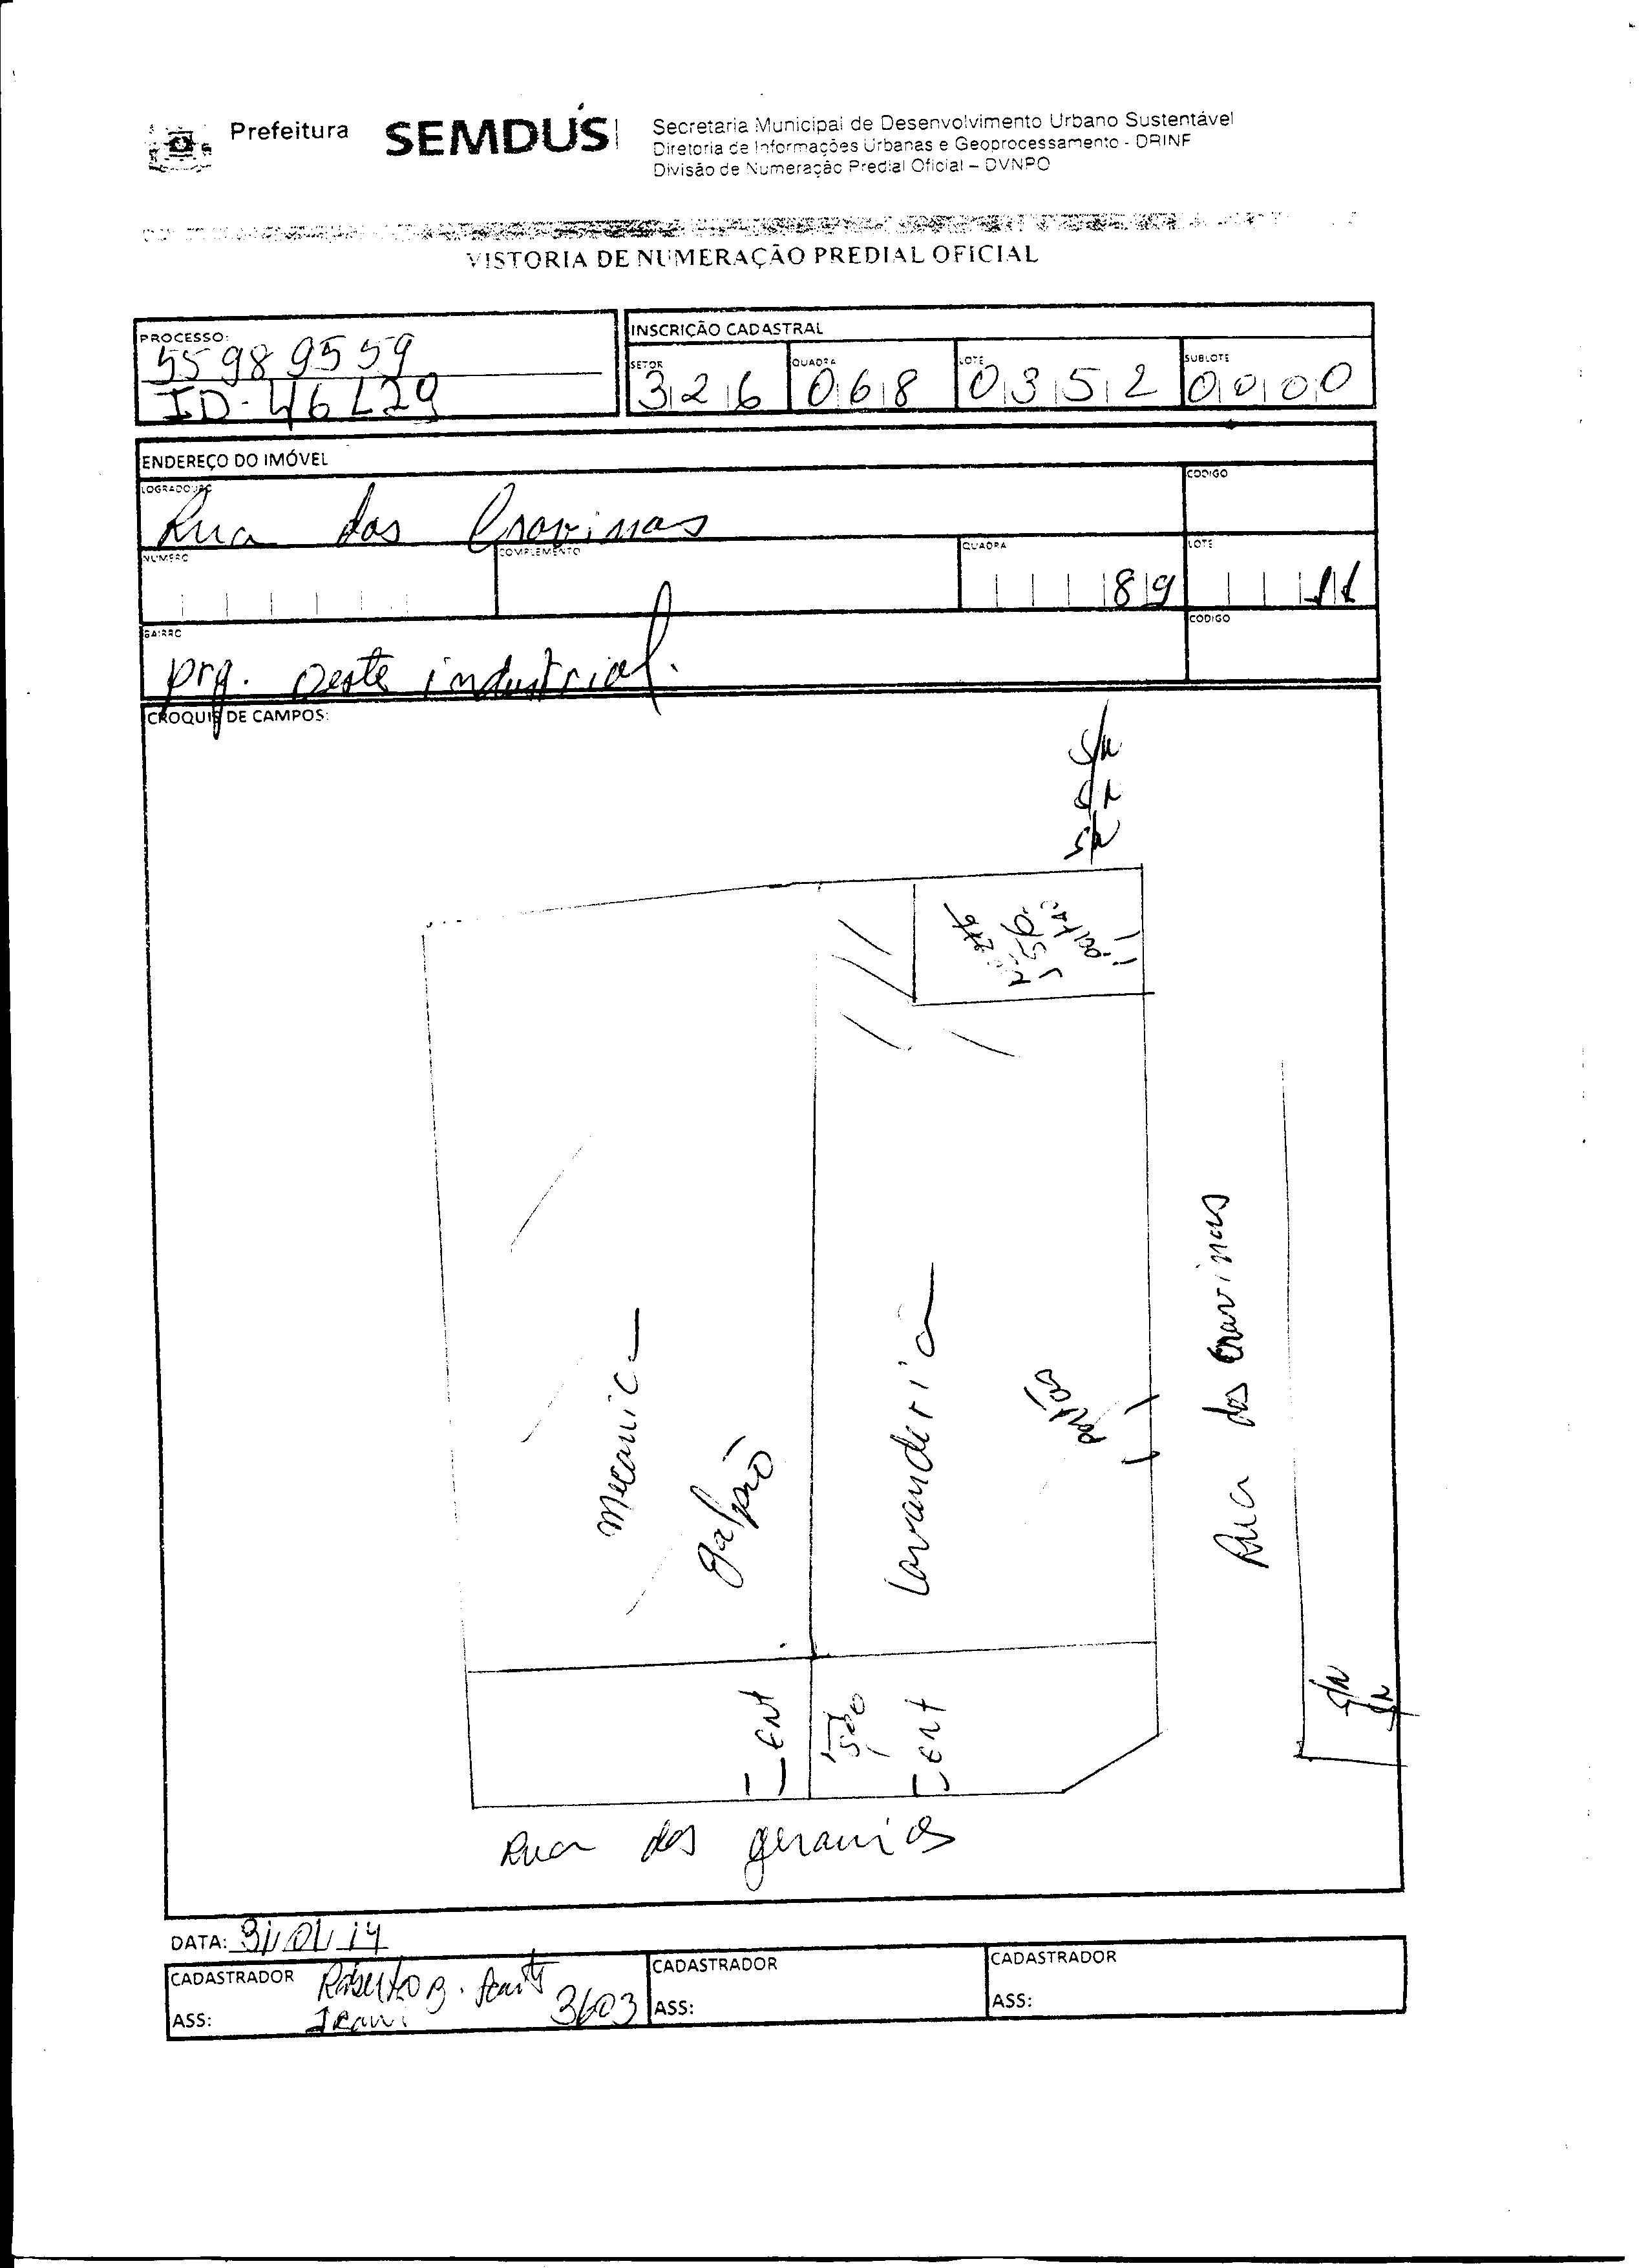 Prefeitura SEMDUS
Secretaria Municipal de Desenvolvimento Urbano Sustentável
Diretoria de Informações Urbanas e Geoprocessamento - DRINF
Divisão de Numeração Predial Oficial – DVNPO
VISTORIA DE NUMERAÇÃO PREDIAL OFICIAL
PROCESSO:
55989559
INSCRIÇÃO CADASTRAL
SETOR QUADRA LOTE SUBLOTE
326 068 0352 0000
ENDEREÇO DO IMÓVEL
LOGRADOURO CODIGO
Rua das Cravinas
NUMERO COMPLEMENTO QUADRA LOTE
89 11
BAIRRO CODIGO
prq. Oeste industrial.
CROQUIS DE CAMPOS:
S/N
S/N
S/N
mecanica
galpão
lavanderia
portão
Rua das Cravinas
S/N
S/N
ENT
ENT
Rua dos geranios
DATA: 31/01/14
CADASTRADOR Roberto B. CADASTRADOR CADASTRADOR
ASS: 3603 ASS: ASS: